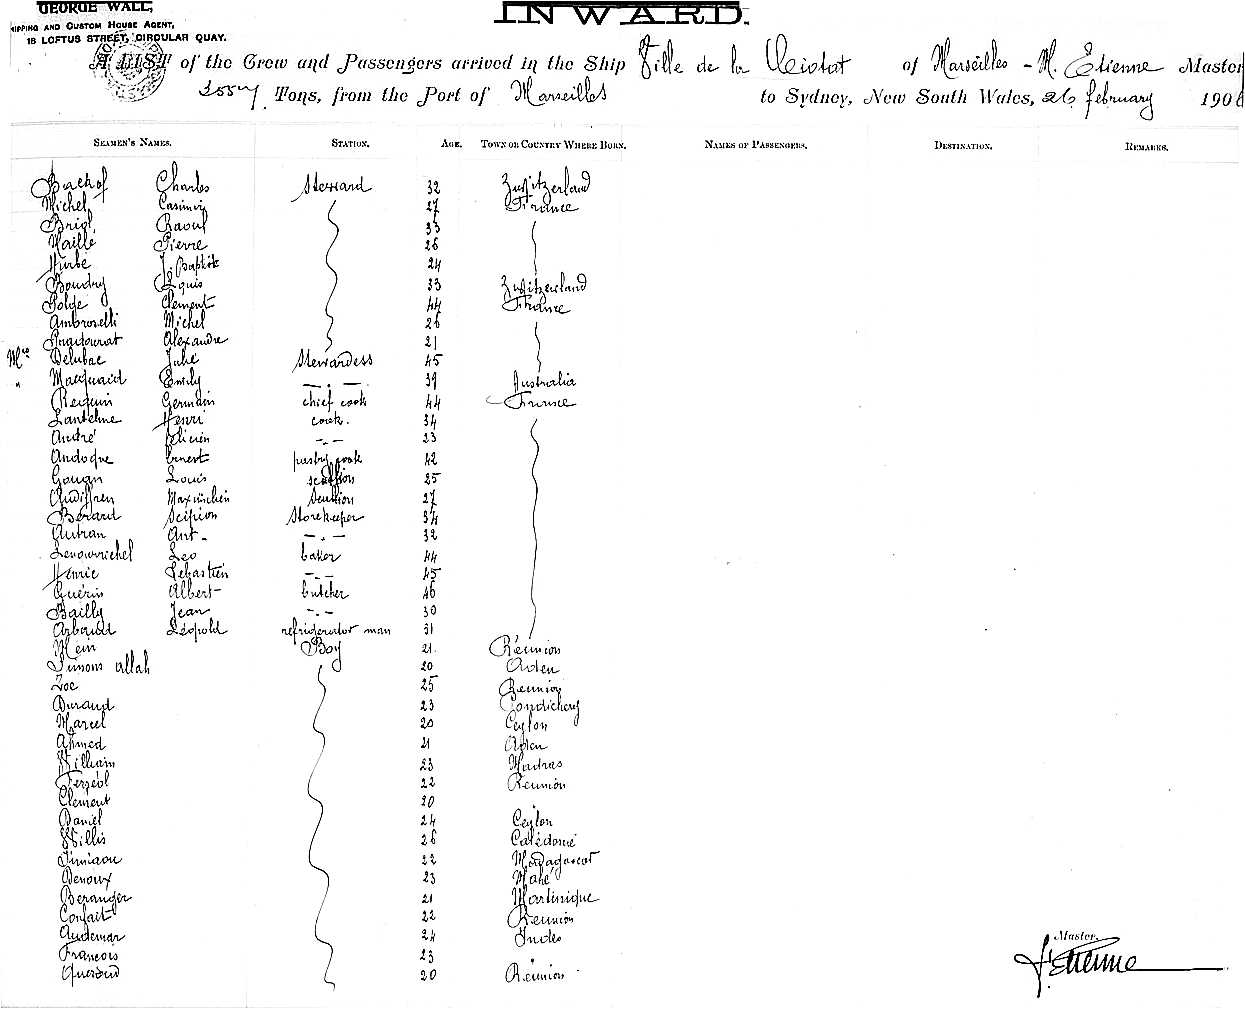 GEORGE WALL,
SHIPPING AND CUSTOM HOUSE AGENT,
16 LOFTUS STREET, CIRCULAR QUAY.
INWARD.
A LIST of the Crew and Passengers arrived in the Ship Ville de la Ciotat of Marseilles - M. Etienne Master
Tons, from the Port of Marseilles to Sydney, New South Wales, 26 february 190
SEAMEN'S NAMES. STATION. AGE. TOWN OR COUNTRY WHERE BORN. NAMES OF PASSENGERS. DESTINATION. REMARKS.
Charles Steward 32 Zwitzerland
Michel Casimir 27 France
Raoul 33
Maillé Pierre 26
J. Baptiste 24
Boudry Louis 33 Zwitzerland
Clement 44 France
Ambroselli Michel 26
Alexandre 21
Mme Delubac Julie Stewardess 45
" Macquaid Emily - . - 39 Australia
Requin Germain chief cook 44 France
Lantelme Henri cook. 34
André Félicien - . - 23
Andoque Ernest pastry cook 42
Gouan Louis scullion 25
Audiffren Maximilien Scullion 27
Bérard Scipion Storekeeper 34
Autran Ant. - . - 32
Leo baker 44
Henric Sebastien - . - 45
Guérin Albert butcher 46
Bailly Jean - . - 30
Arbaud Léopold refrigerator man 31
Boy 21. Réunion
allah 20 Aden
Zoe 25 Réunion
Durand 23 Pondichery
Marcel 20 Ceylon
Ahmed 21 Aden
William 23 Madras
22 Réunion
Clement 20
Daniel 24 Ceylon
Willis 26 Calédonie
22 Madagascar
Denoux 23 Mahé
Beranger 21 Martinique
Confait 22 Réunion
Audemar 24 Indes
Francois 23
20 Réunion
Master,
Etienne